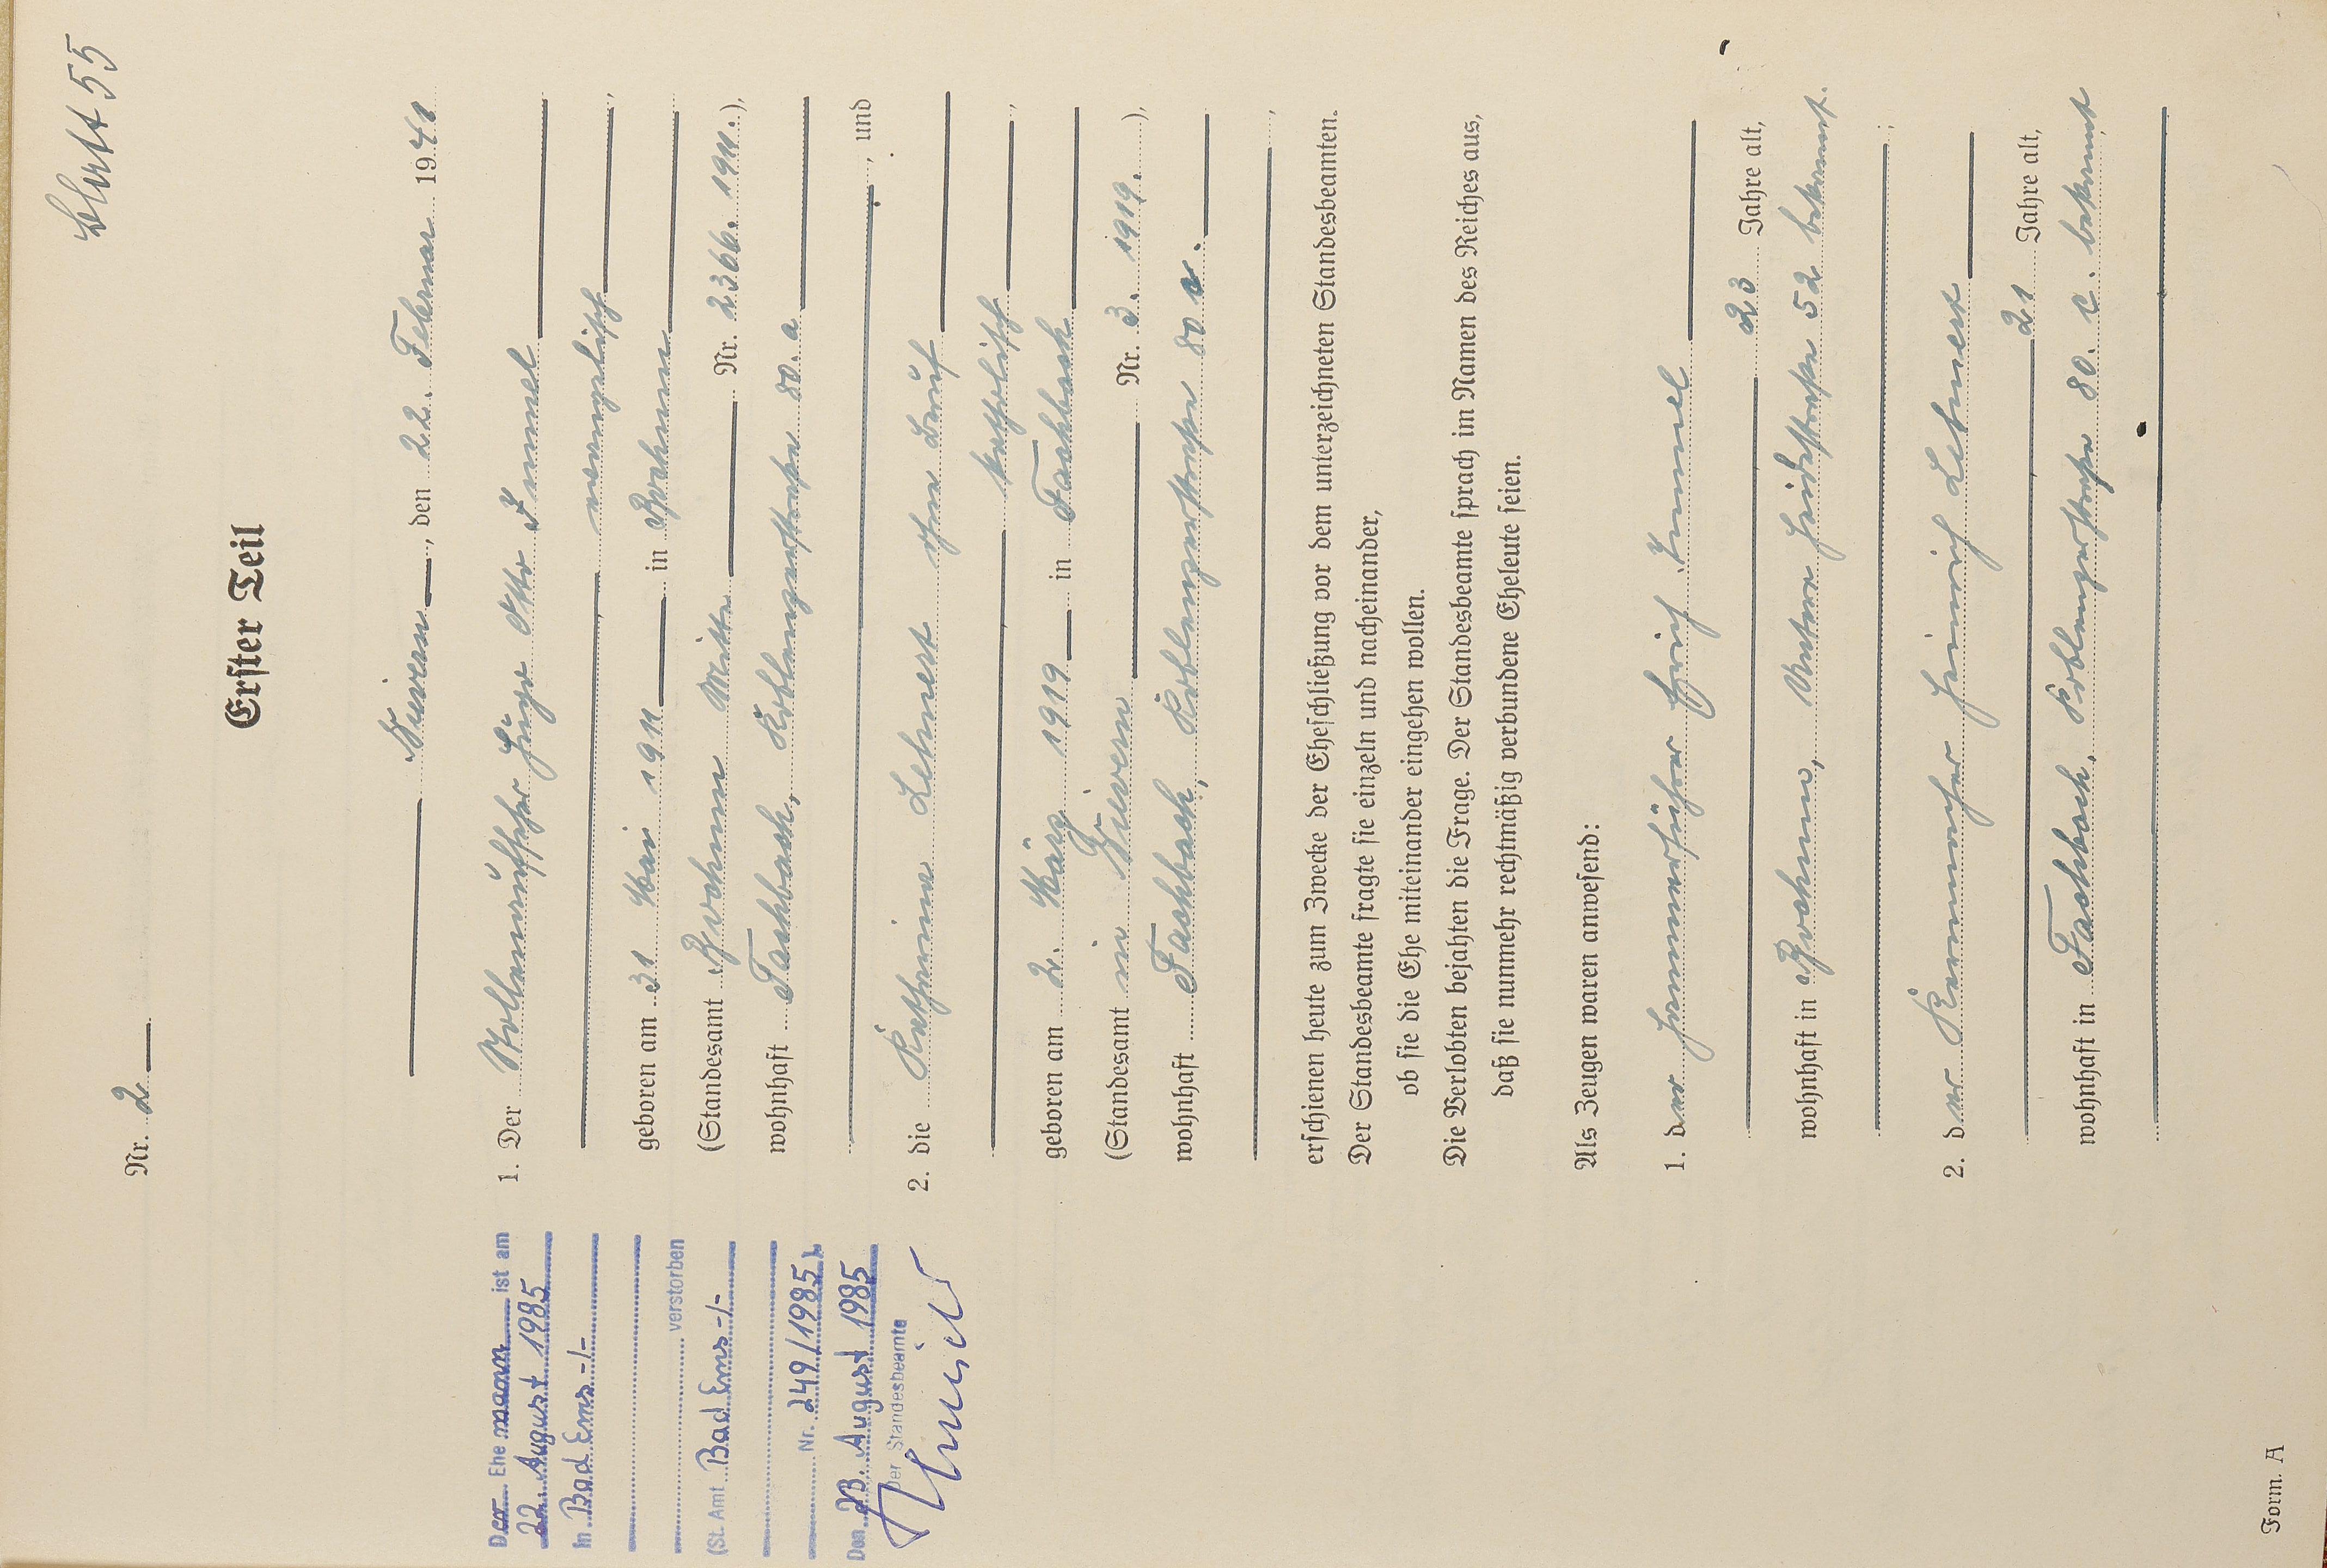 Blatt 55
Nr. 2
Erster Teil
Nievern, den 22. Februar 1941
1. Der Kollenaufseher Hugo Otto Immel
evangelisch,
geboren am 31 Mai 1911 in Bochum
(Standesamt Bochum Mitte Nr. 2366. 1911.),
wohnhaft Fachbach, Koblenzerstraße 80. a
, und
2. die Katharina Lehnert ohne Beruf
katholisch,
geboren am 2. März 1919 in Fachbach
(Standesamt in Nievern Nr. 3. 1919.),
wohnhaft Fachbach, Koblenzerstraße 80 c.
,
erschienen heute zum Zwecke der Eheschließung vor dem unterzeichneten Standesbeamten.
Der Standesbeamte fragte sie einzeln und nacheinander,
ob sie die Ehe miteinander eingehen wollen.
Die Verlobten bejahten die Frage. Der Standesbeamte sprach im Namen des Reiches aus,
daß sie nunmehr rechtmäßig verbundene Eheleute seien.
Als Zeugen waren anwesend:
1. der Hammerführer Erich Immel
, 23 Jahre alt,
wohnhaft in Bochum, Untere Heidestraße 52 bekannt.
;
2. der Kernmacher Heinrich Lehnert
, 21 Jahre alt,
wohnhaft in Fachbach, Koblenzerstraße 80. c. bekannt
Der Ehemann ist am
22. August 1985
in Bad Ems -/-
verstorben
(St. Amt Bad Ems -/-
Nr. 249/1985).
Den 23. August 1985
Der Standesbeamte
Form. A